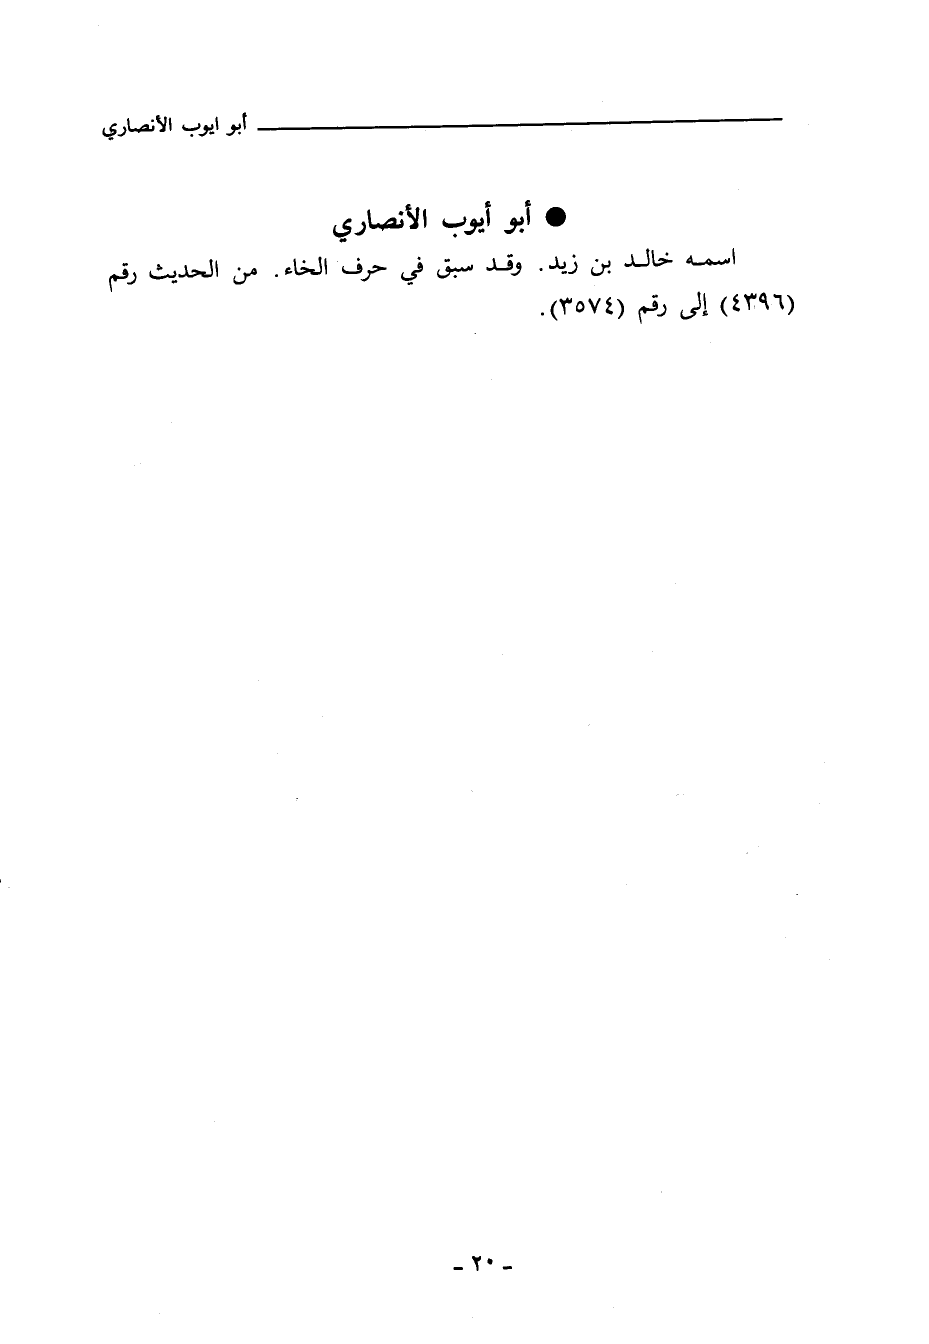 أبو ايوب الأنصاري
● أبو أيوب الأنصاري
اسمه خالد بن زيد. وقد سبق في حرف الخاء. من الحديث رقم
(٤٣٩٦) إلى رقم (٣٥٧٤).
- ٢٠ -